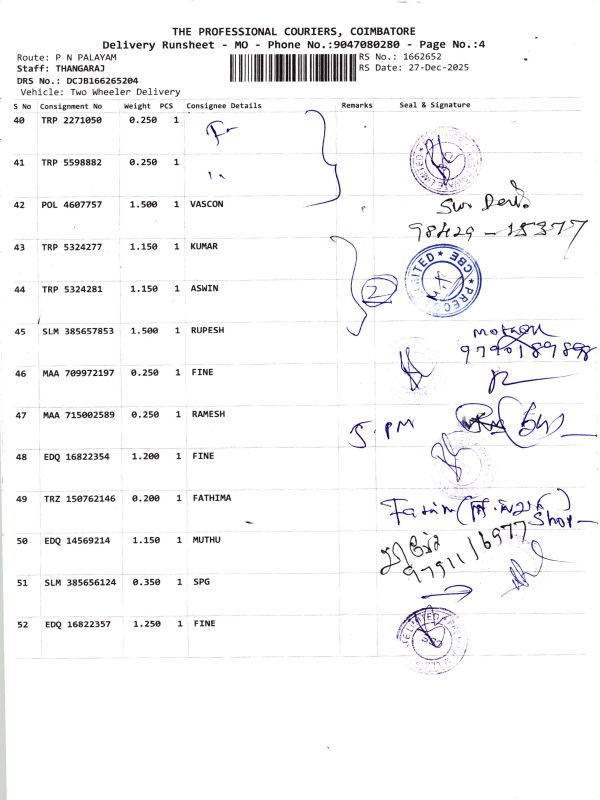 THE PROFESSIONAL COURIERS, COIMBATORE
Delivery Runsheet - MO - Phone No.:9047080280 - Page No.:4
Route: P N PALAYAM RS No.: 1662652
Staff: THANGARAJ RS Date: 27-Dec-2025
DRS No.: DCJB166265204
Vehicle: Two Wheeler Delivery
S No Consignment No Weight PCS Consignee Details Remarks Seal & Signature
40 TRP 2271050 0.250 1
41 TRP 5598882 0.250 1
42 POL 4607757 1.500 1 VASCON
98429-15377
43 TRP 5324277 1.150 1 KUMAR
44 TRP 5324281 1.150 1 ASWIN 2
45 SLM 385657853 1.500 1 RUPESH
9790189898
46 MAA 709972197 0.250 1 FINE
47 MAA 715002589 0.250 1 RAMESH 5. PM
48 EDQ 16822354 1.200 1 FINE
49 TRZ 150762146 0.200 1 FATHIMA
Shop
50 EDQ 14569214 1.150 1 MUTHU
9791116977
51 SLM 385656124 0.350 1 SPG
52 EDQ 16822357 1.250 1 FINE